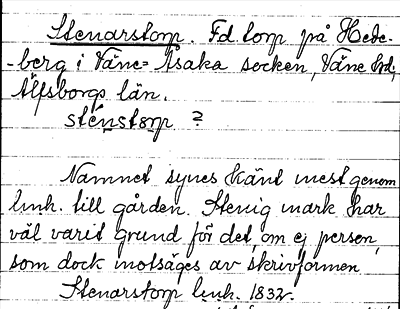 Stenarstorp. Fd torp på Hede-
-berg i Väne-Åsaka socken, Väne hd,
Älfsborgs län.
sténstorp ?
Namnet synes känt mest genom
lmh. till gården. Stenig mark har
väl varit grund för det, om ej person,
som dock motsäges av skrivformen
Stenarstorp lmh. 1832.